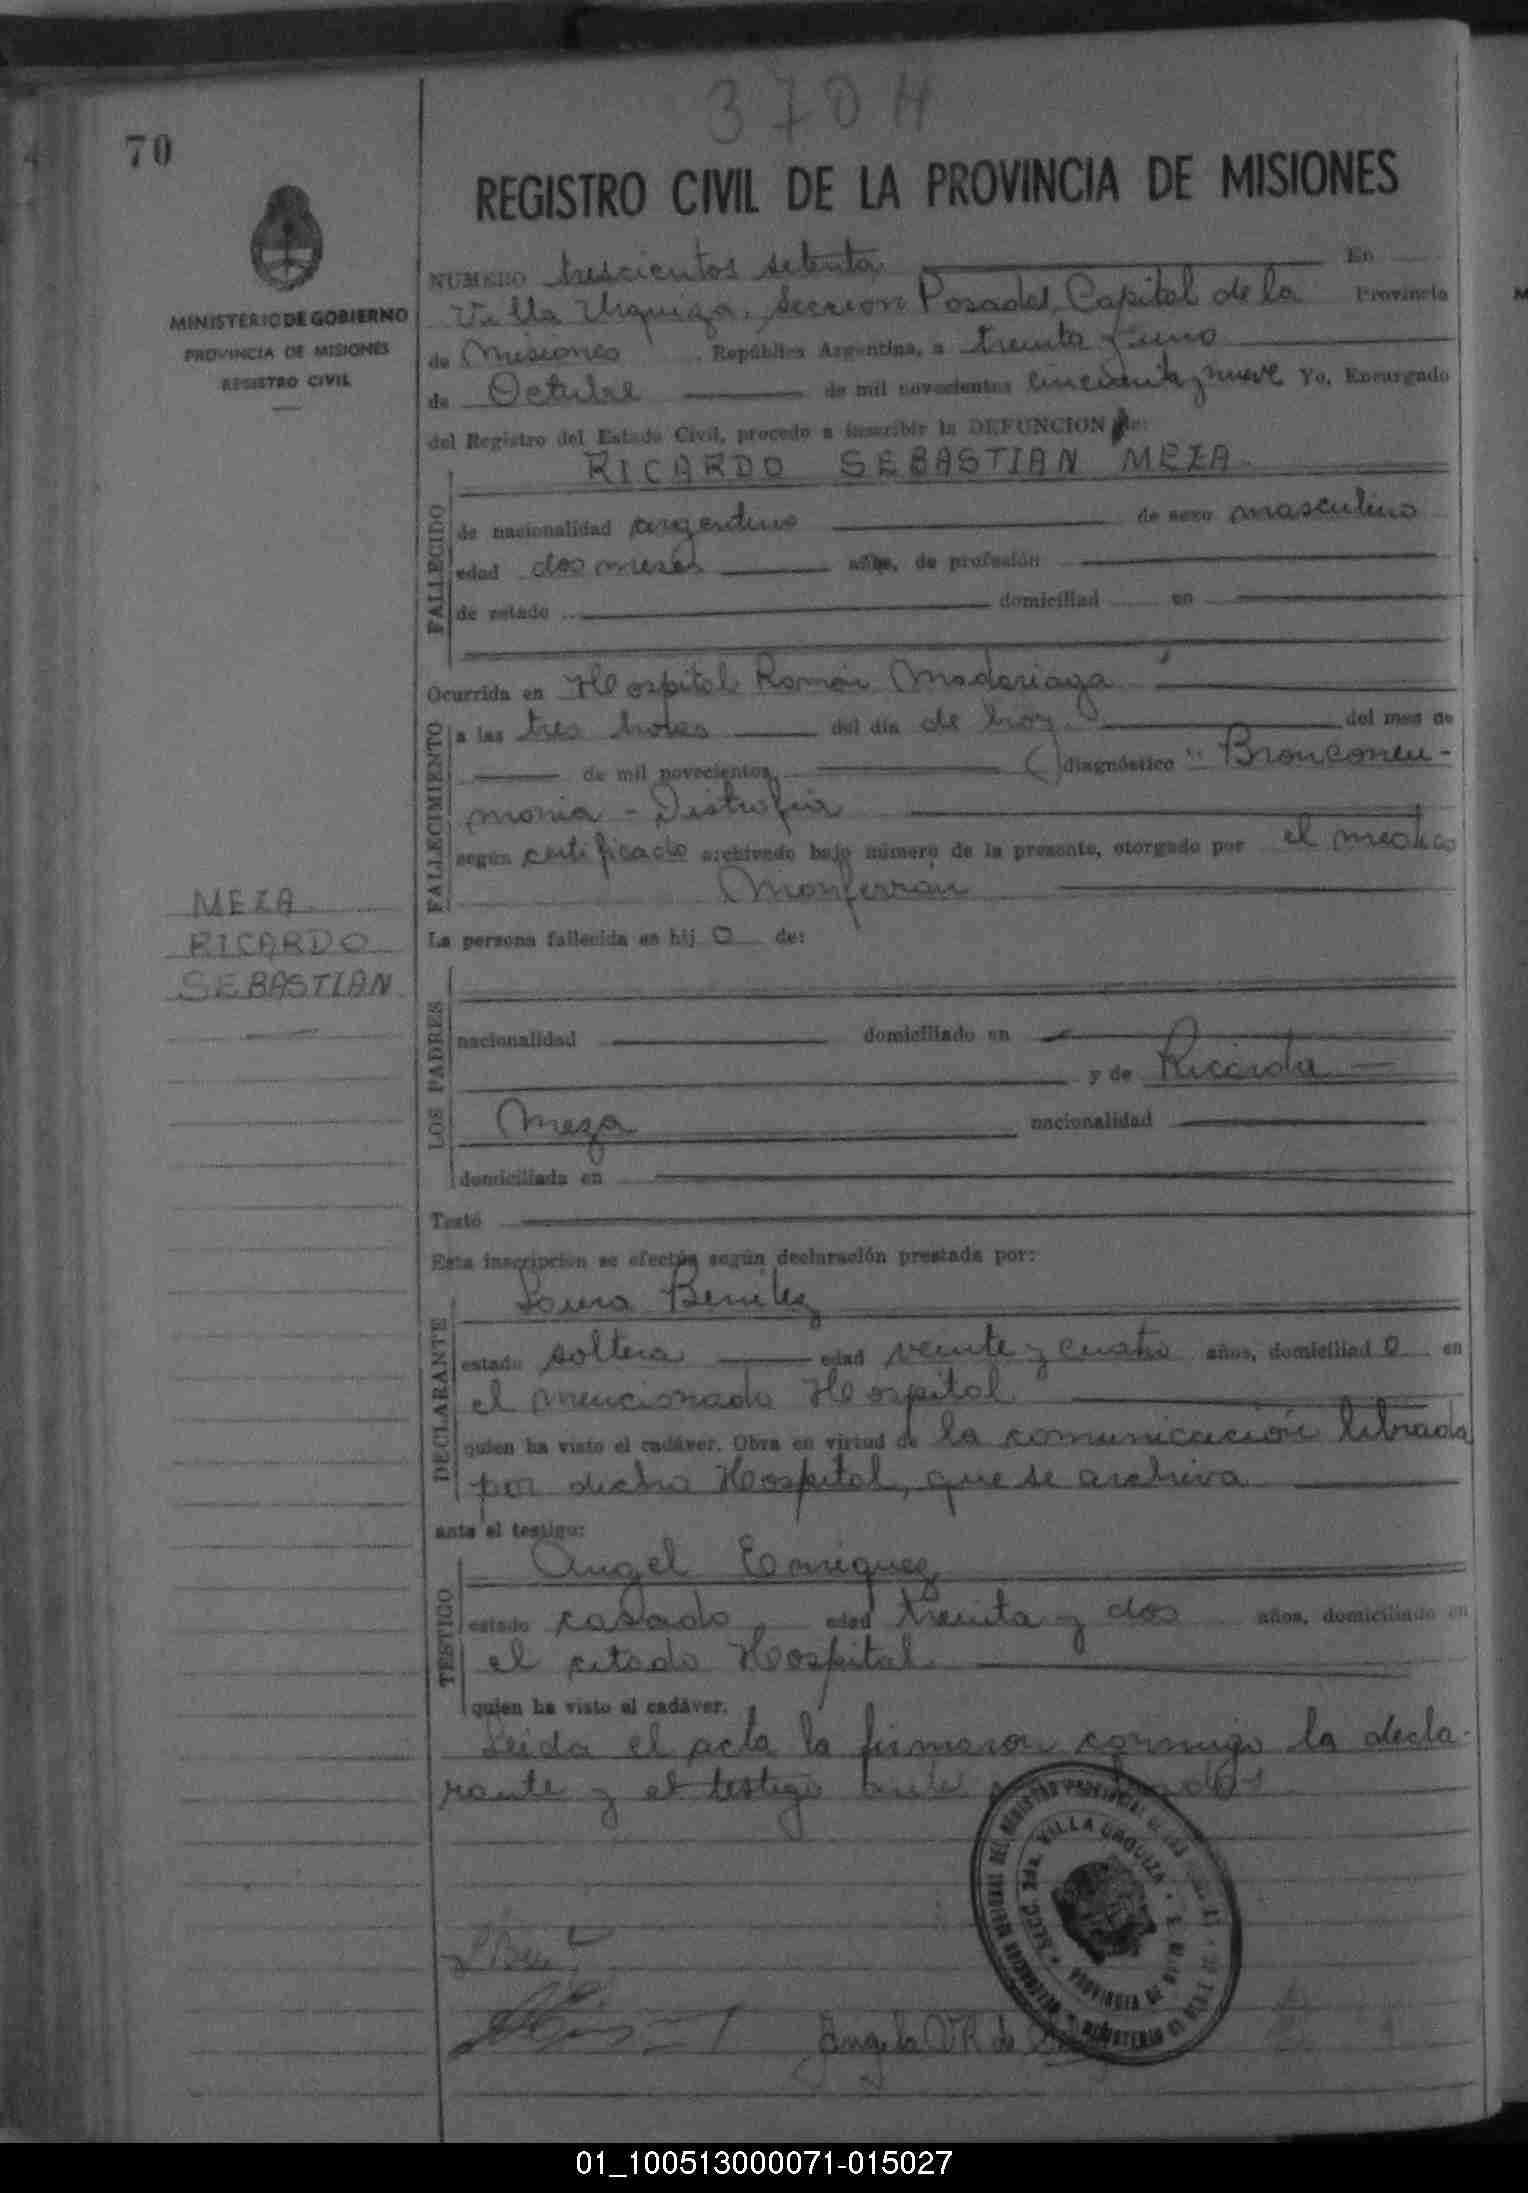 370 H
70
REGISTRO CIVIL DE LA PROVINCIA DE MISIONES
MINISTERIO DE GOBIERNO
PROVINCIA DE MISIONES
REGISTRO CIVIL
NUMERO trescientos setenta En
Villa Urquiza, Sección Posadas, Capital de la Provincia
de Misiones República Argentina, a treinta y uno
de Octubre de mil novecientos cincuenta y nueve Yo, Encargado
del Registro del Estado Civil, procedo a inscribir la DEFUNCION de:
RICARDO SEBASTIAN MEZA
FALLECIDO
de nacionalidad argentino de sexo masculino
edad dos meses años, de profesión
de estado domiciliad en
Ocurrida en Hospital Ramón Madariaga
FALLECIMIENTO
a las tres horas del día de hoy del mes de
de mil novecientos diagnóstico "Bronconeu-
monia - Distrofia
según certificado archivado bajo número de la presente, otorgado por el medico
Monferrán
MEZA
RICARDO
SEBASTIAN
La persona fallecida es hij o de:
LOS PADRES
nacionalidad domiciliado en
y de Ricarda
Meza nacionalidad
domiciliada en
Testó
Esta inscripción se efectúa según declaración prestada por:
DECLARANTE
Laura Benitez
estado soltera edad veinte y cuatro años, domiciliad o en
el mencionado Hospital
quien ha visto el cadáver. Obra en virtud de la comunicación librada
por dicho Hospital, que se archiva
ante el testigo:
TESTIGO
Angel Enriquez
estado casado edad treinta y dos años, domiciliado en
el citado Hospital
quien ha visto el cadáver.
Leida el acta la firmaron conmigo la decla-
rante y el testigo ante
SECC. 2da. VILLA URQUIZA
PROVINCIA DE
Angela R de
01_100513000071-015027